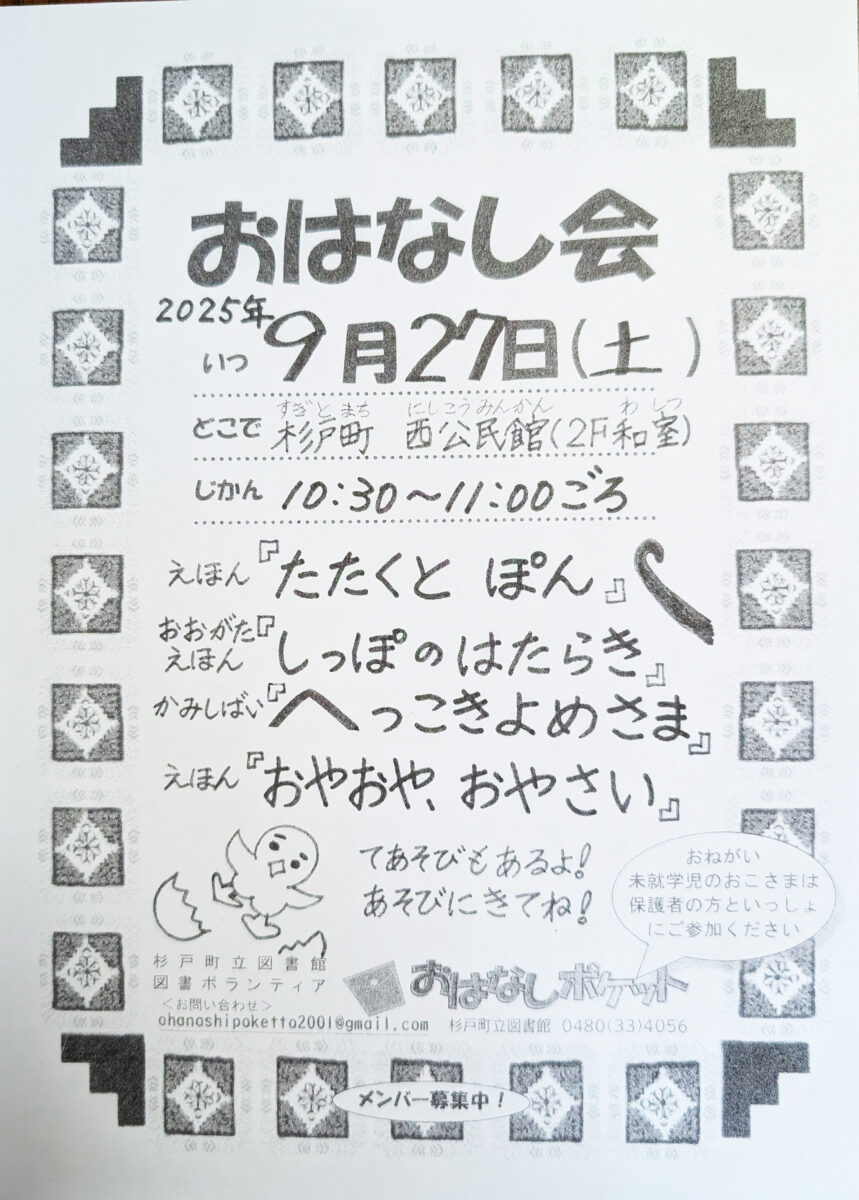 おはなし会
2025年
いつ 9月27日(土)
すぎとまち にしこうみんかん わしつ
どこで 杉戸町 西公民館(2F和室)
じかん 10:30～11:00ごろ
えほん『たたくと ぽん』
おおがた
えほん『しっぽのはたらき』
かみしばい『へっこきよめさま』
えほん『おやおや、おやさい』
てあそびもあるよ!
あそびにきてね!
おねがい
未就学児のおこさまは
保護者の方といっしょ
にご参加ください
杉戸町立図書館
図書ボランティア
おはなしポケット
＜お問い合わせ＞
ohanashipoketto2001@gmail.com 杉戸町立図書館 0480(33)4056
メンバー募集中！